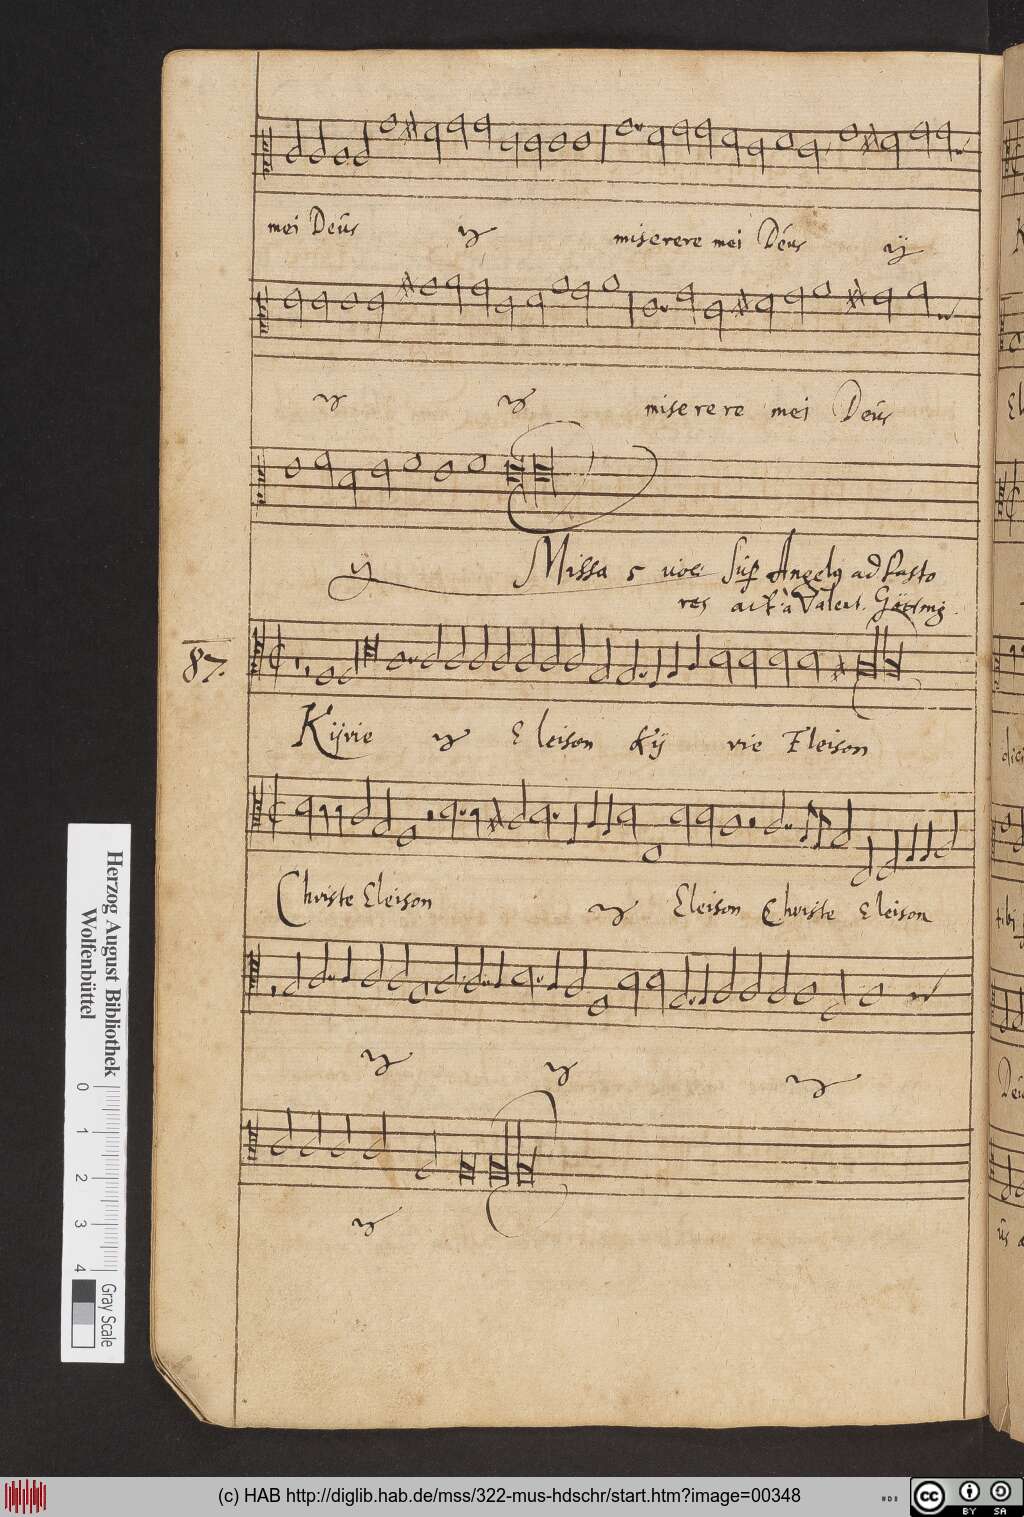 mei Deûs ÿ miserere mei Deûs ÿ
ÿ ÿ miserere mei Deûs
ÿ Missa 5 voc Sup Angelg ad Pasto
res aut: à Valent.
87.
Kijrie ÿ Eleison Kÿ rie Eleison
Christe Eleison ÿ Eleison Christe Eleison
ÿ ÿ ÿ
ÿ
Herzog August Bibliothek
Wolfenbüttel
0 1 2 3 4
Gray Scale
(c) HAB http://diglib.hab.de/mss/322-mus-hdschr/start.htm?image=00348
cc BY SA